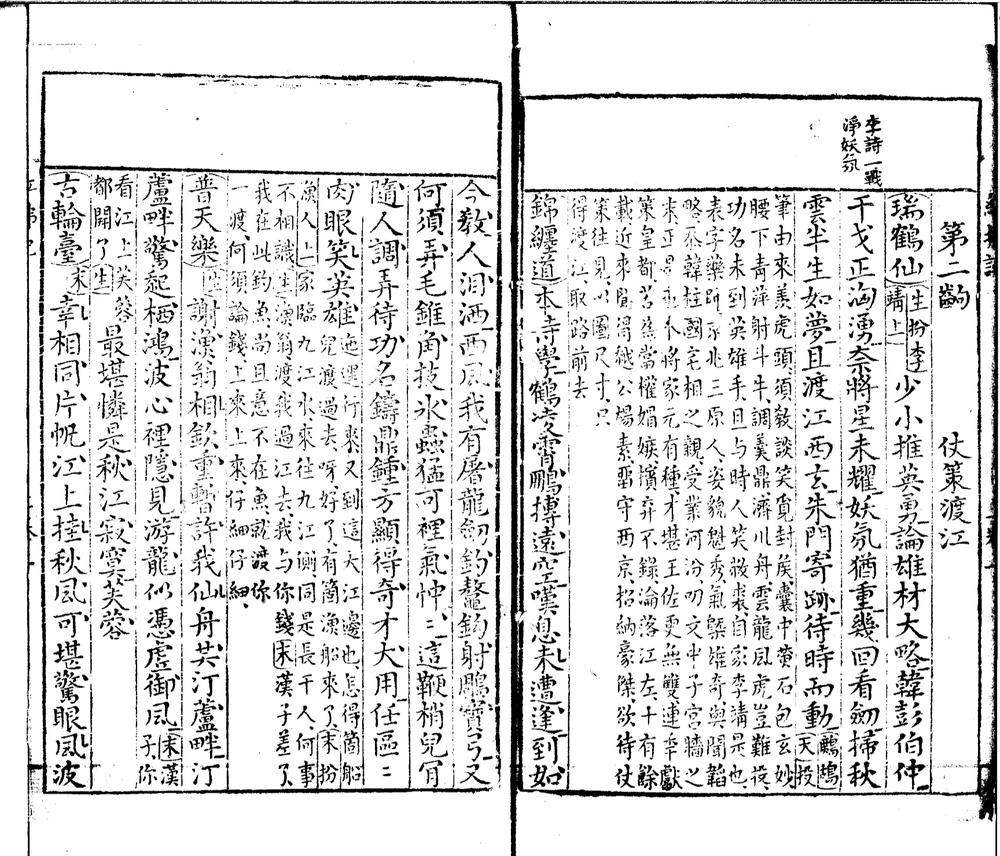 李詩一戰
淨妖氛
第二齣　仗策渡江
瑞鶴仙生扮李靖上少小推英勇論雄材大略韓彭伯仲
干戈正洶湧奈將星未耀妖氛猶重幾回看劒掃秋
雲半生如夢且渡江西去朱門寄跡待時而動鷓鴣天投
筆由來羨虎頭須教談笑覓封矦囊中黃石包玄妙
腰下青萍射斗牛調羹鼎濟川舟雲龍風虎豈難投
功名未到英雄手且与時人笑敝裘自家李靖是也
表字藥師京兆三原人姿貌魁秀氣槩雄奇與聞韜
略忝韓柱國宅相之親受業河汾叨文中子宮牆之
來正是不將家元有種才堪王佐更無雙連年獻
策皇都苦當權媢嫉擯弃不錄淪落江左十有餘
載近來聞得越公楊素留守西京招納豪傑欲待仗
策往見以圖尺寸只
得渡江取路前去
錦纏道本待學鶴凌霄鵬摶遠空嘆息未遭逢到如
今教人淚洒西風我有屠龍劒釣鰲鈎射鵰寶弓又
何須弄毛錐角技冰蟲猛可裡氣忡忡這鞭梢兒肎
隨人調弄待功名鑄鼎鍾方顯得奇才大用任區區
肉眼笑英雄迤邐行來又到這大江邊也怎得箇船
兒渡過去呀好了有箇漁船來了末扮
漁人上家臨九江水來往九江側同是長干人何事
不相識生漁翁渡我過江去我与你錢末漢子差了
我在此釣魚尚且意不在魚就渡你
一渡何須論錢上來上來仔細仔細
普天樂生謝漁翁相欽重暫許我仙舟共汀蘆畔汀
蘆畔驚起栖鴻波心裡隱見游龍似憑虛御風末漢子你
看江上芙蓉都開了生最堪憐是秋江寂寞芙蓉
古輪臺末幸相同片帆江上挂秋風可堪驚眼風波